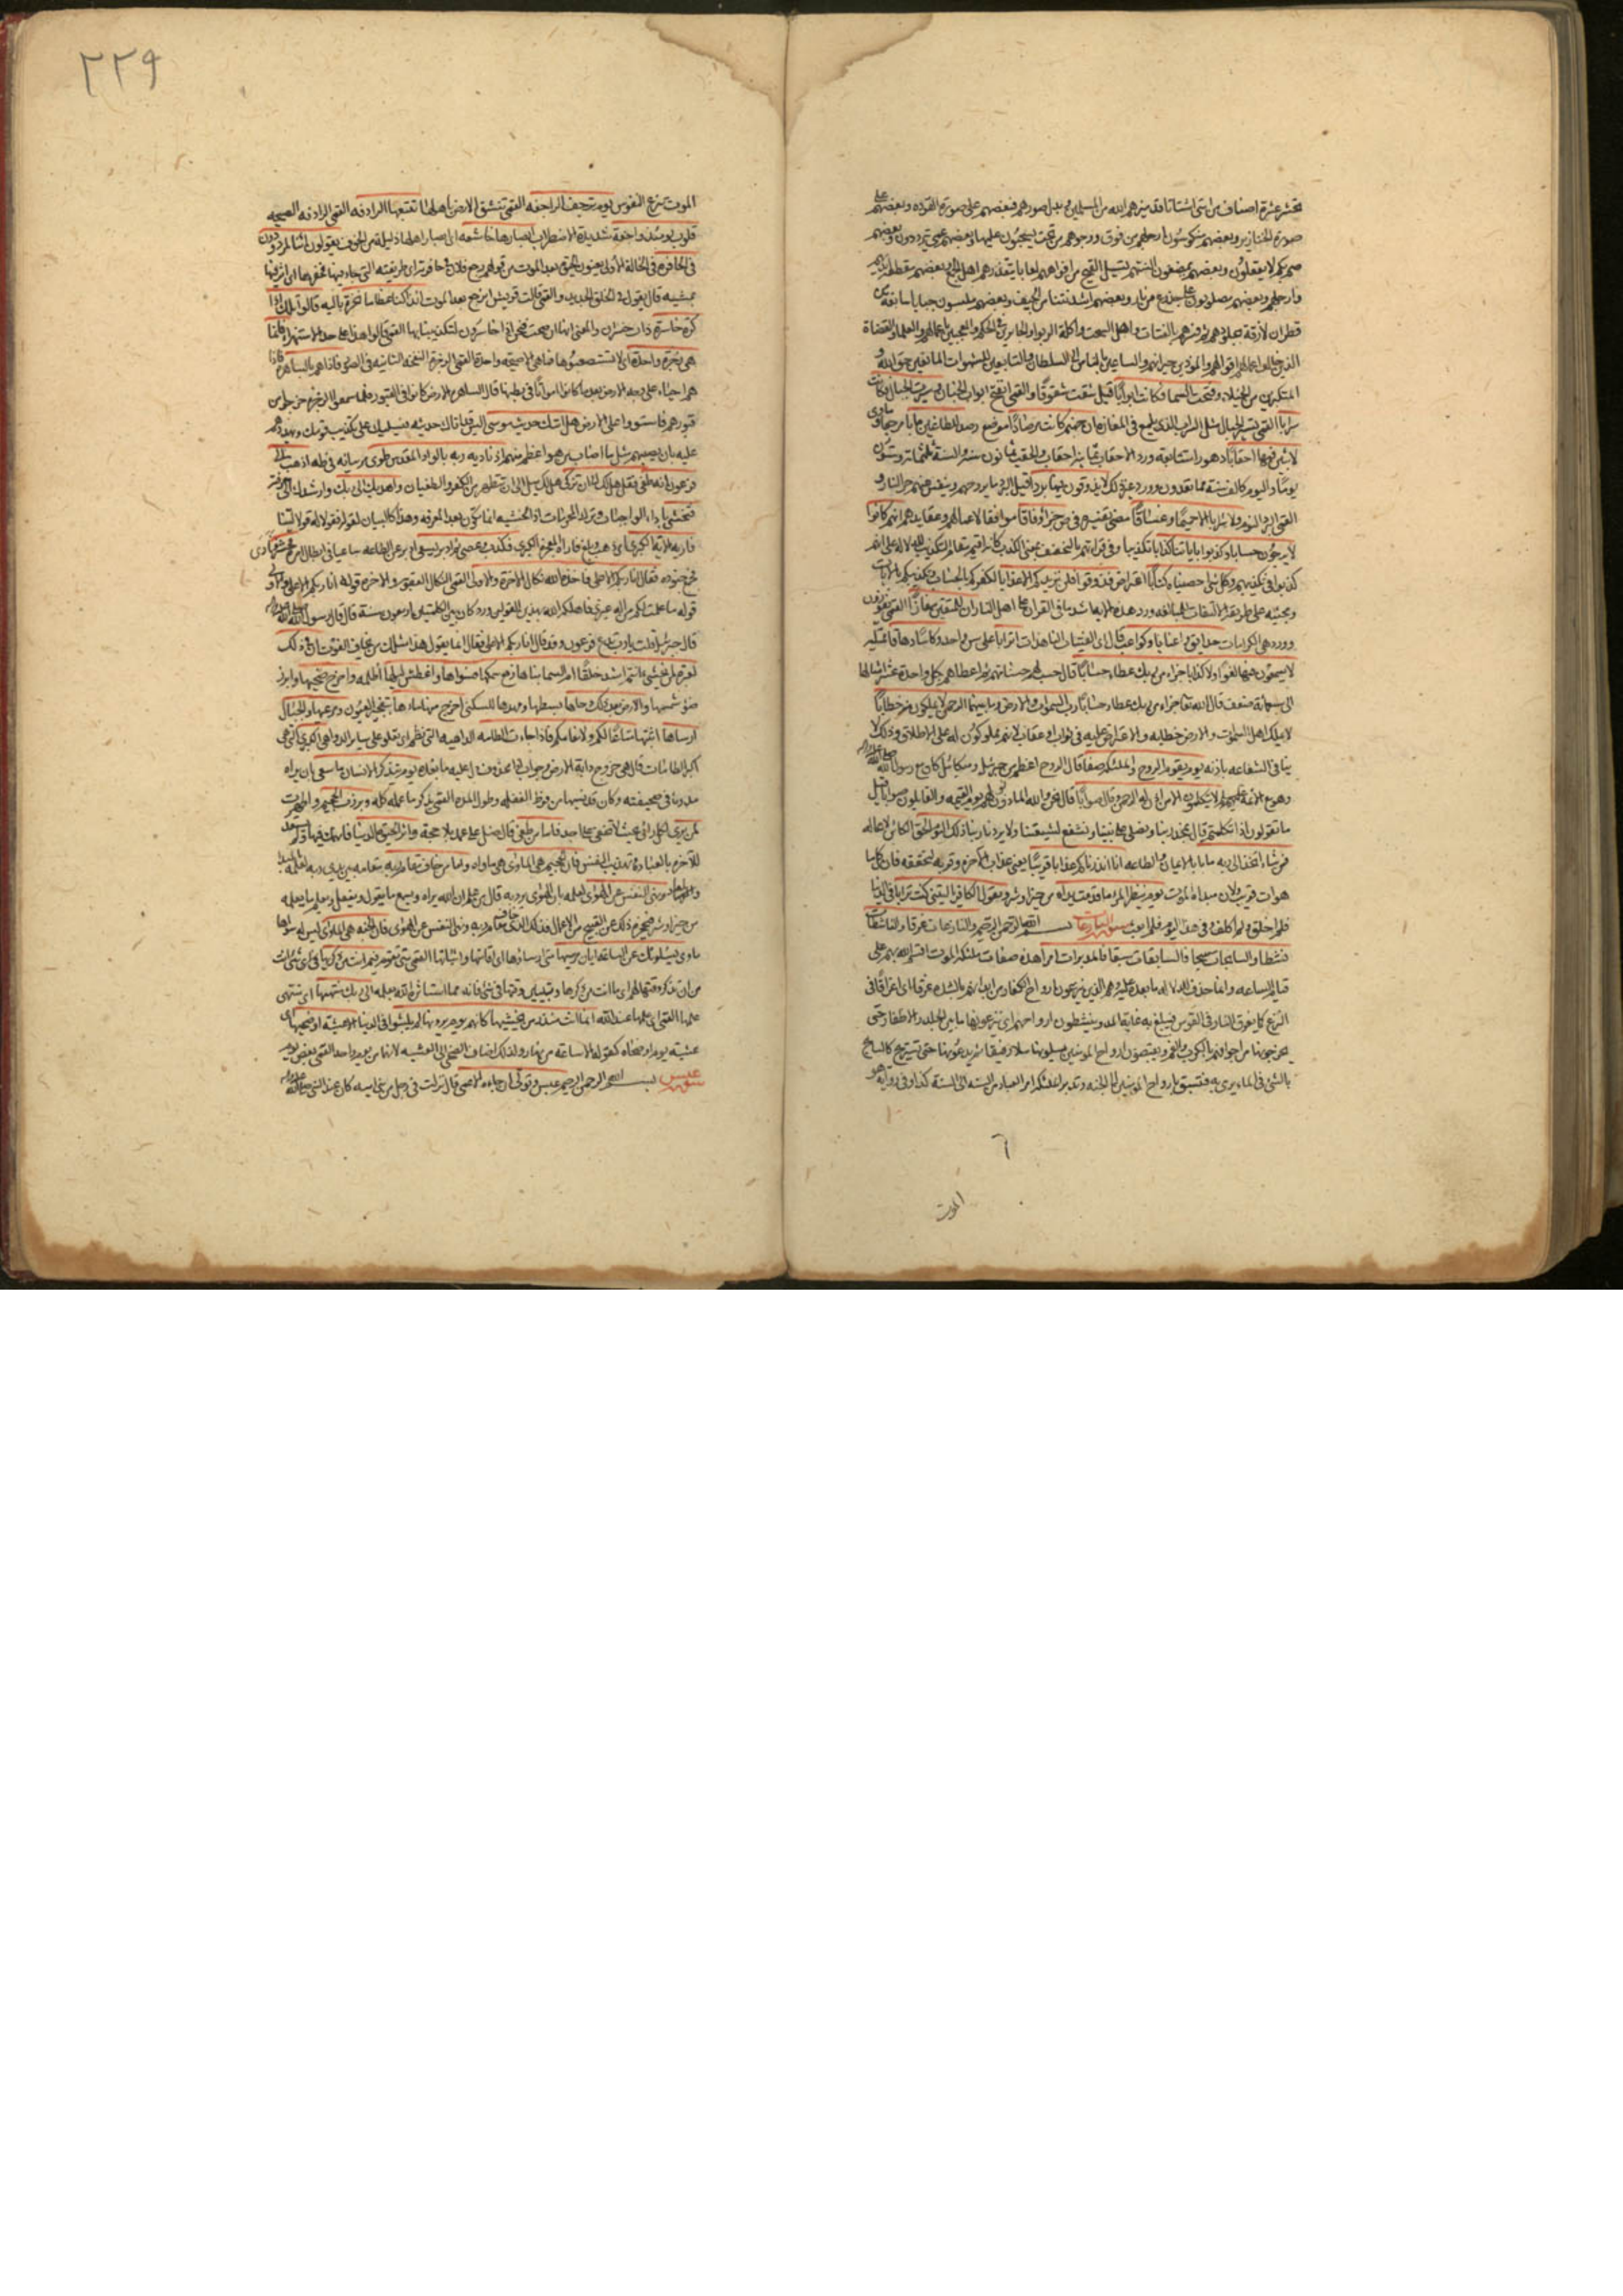 تحشر عشرة اصناف من امتى اشتاتا قد ميزهم الله من المسلمين و بدل صورهم فبعضهم على صورة القردة و بعضهم على
صورة الخنازير و بعضهم منكوسون ارجلهم من فوق و وجوههم من تحت يسحبون عليها و بعضهم عمى يترددون و بعضهم
صم بكم لا يعقلون و بعضهم يمضغون السنتهم يسيل القيح من افواههم لعابا يتقذرهم اهل الجمع و بعضهم مقطعة ايديهم
وارجلهم و بعضهم مصلوبون على جذوع من نار و بعضهم اشد نتنا من الجيف و بعضهم ملبسون جبابا سابغة من
قطران لازقة بجلودهم ثم فسرهم بالقتات و اهل السحت و اكلة الربوا و الجائرين فى الحكم و المعجبين باعمالهم و العلماء و القضاة
الذين خالف اعمالهم اقوالهم و الموذين جيرانهم و الساعين بالناس الى السلطان و التابعين للشهوات المانعين حق الله و
المتكبرين من الخيلاء و فتحت السماء و كانت ابوابا قيل شقت شقوقا و القمى تفتح ابواب الجنان و سيرت الجبال فكانت
سرابا القمى تسير الجبال مثل السراب الذى يلمع فى المفازة ان جهنم كانت مرصادا موضع رصد للطاغين مابا مرجعا و ماوى
لابثين فيها احقابا دهورا متتابعة ورد الاحقاب ثمانية احقاب و الحقب ثمانون سنة و السنة ثلثمائة و ستون
يوما و اليوم كالف سنة مما تعدون و ورد غير ذلك لا يذوقون فيها بردا قيل اى ما يروحهم و ينفس عنهم حر النار و
القمى البرد النوم و لا شرابا الا حميما و غساقا مضى تفسيره فى ص جزاء وفاقا موافقا لاعمالهم و عقايدهم انهم كانوا
لا يرجون حسابا و كذبوا باياتنا كذابا تكذيبا و فى قراءتهم بالتخفيف بمعنى الكذب
كذبوا فى تكذيبهم و كل شئ احصيناه كتابا اعتراض فذوقوا فلن نزيدكم الا عذابا لكفركم بالحساب و تكذيبكم بالايات
و مجيئه على طريقة الالتفات للمبالغة و ورد هذه الاية اشد ما فى القران على اهل النار ان للمتقين مفازا القمى يفوزون
و ورد هى الكرامات حدايق و اعنابا و كواعب قال اى الفتيات الناهدات اترابا على سن واحد و كاسا دهاقا ممتلية
لا يسمعون فيها لغوا و لا كذابا جزاء من ربك عطاء حسابا قال حسب لهم حسناتهم ثم اعطاهم بكل واحدة عشر امثالها
الى سبعمائة ضعف قال الله تعالى جزاء من ربك عطاء حسابا رب السموات و الارض و ما بينهما الرحمن لا يملكون منه خطابا
لا يملك اهل السموات و الارض خطابه و الاعتراض عليه فى ثواب او عقاب لانهم مملوكون له على الاطلاق و ذلك لا
ينافى الشفاعة باذنه يوم يقوم الروح و الملئكة صفا قال الروح اعظم من جبرئيل و ميكائيل كان مع رسول الله صلى الله عليه و اله
و هو مع الائمة عليهم السلام لا يتكلمون الا من اذن له الرحمن و قال صوابا قال نحن و الله الماذون لهم يوم القيمة و القائلون صوابا قيل
ما تقولون اذا تكلمتم قال نمجد ربنا و نصلى على نبينا و نشفع لشيعتنا و لا يردنا ربنا ذلك اليوم الحق الكائن لا محالة
فمن شاء اتخذ الى ربه مابا بالايمان و الطاعة انا انذرناكم عذابا قريبا يعنى عذاب الاخرة و قربه لتحققه فان كل ما
هو ات قريب و لان مبداه الموت يوم ينظر المرء ما قدمت يداه من خير او شر و يقول الكافر يا ليتنى كنت ترابا فى الدنيا
فلم اخلق و لم اكلف او فى هذا اليوم فلم ابعث سورة النازعات بسم الله الرحمن الرحيم و النازعات غرقا و الناشطات
نشطا و السابحات سبحا فالسابقات سبقا فالمدبرات امرا هذه صفات ملئكة الموت اقسم الله بهم على
قيام الساعة و انما حذف لدلالة ما بعده عليه و هم الذين ينزعون ارواح الكفار من ابدانهم بالشدة غرقا اى اغراقا فى
النزع كما يغرق النازع فى القوس فيبلغ به غاية المد و ينشطون ارواحهم اى ينزعونها ما بين الجلد و الاظفار حتى
يخرجونها من اجوافهم بالكرب و الغم و يقبضون ارواح المومنين يسلونها سلا رفيقا ثم يدعونها حتى تستريح كالسابح
بالشئ فى الماء يرمى به فتسبق بارواح المومنين الى الجنة و تدبر الملئكة امر العباد من السنة الى السنة كذا و فى رواية هو
الموت
٢٢٩
الموت ينزع النفوس يوم ترجف الراجفة القمى تنشق الارض باهلها تتبعها الرادفة القمى الرادفة الصيحة
قلوب يومئذ واجفة شديدة الاضطراب ابصارها خاشعة اى ابصار اهلها ذليلة من الخوف يقولون ائنا لمردودون
فى الحافرة فى الحالة الاولى يعنون الحيوة بعد الموت من قولهم رجع فلان فى حافرته اى طريقته التى جاء فيها فحفرها اى اثر فيها
بمشيه قال يقول فى الخلق الجديد و القمى قالت قريش انرجع بعد الموت ائذا كنا عظاما نخرة بالية قالوا تلك اذا
كرة خاسرة ذات خسران و المعنى انها ان صحت فنحن اذا خاسرون لتكذيبنا بها القمى قالوا هذا على حد الاستهزاء فانما
هى زجرة واحدة اى لا تستصعبوها فما هى الا صيحة واحدة القمى الزجرة النفخة الثانية فى الصور فاذا هم بالساهرة فاذا
هم احياء على وجه الارض بعد ما كانوا امواتا فى بطنها قال الساهرة الارض كانوا فى القبور فلما سمعوا الزجرة خرجوا من
قبورهم فاستووا على الارض هل اتيك حديث موسى اليس قد اتاك حديثه فيسليك على تكذيب قومك و يهددهم
عليه بان يصيبهم مثل ما اصاب من هو اعظم منهم اذ ناديه ربه بالواد المقدس طوى مر بيانه فى طه اذهب الى
فرعون انه طغى فقل هل لك الى ان تزكى هل لك ميل الى ان تتطهر من الكفر و الطغيان و اهديك الى ربك و ارشدك الى معرفته
فتخشى باداء الواجبات و ترك المحرمات اذ الخشية انما تكون بعد المعرفة و هذا كالبيان لقوله فقولا له قولا لينا
فاريه الاية الكبرى اى فذهب و بلغ فاراه المعجزة الكبرى فكذب و عصى ثم ادبر يسعى ادبر عن الطاعة ساعيا فى ابطال امره فحشر فنادى
فجمع جنوده فقال انا ربكم الاعلى فاخذه الله نكال الاخرة و الاولى القمى النكال العقوبة و الاخرة قوله انا ربكم الاعلى و الاولى
قوله ما علمت لكم من اله غيرى فاهلكه الله بهذين القولين و ورد كان بين الكلمتين اربعون سنة قال قال رسول الله صلى الله عليه و اله
قال جبرئيل قلت يا رب تدع فرعون و قد قال انا ربكم الاعلى فقال انما يقول هذا مثلك من يخاف الفوت ان فى ذلك
لعبرة لمن يخشى ءانتم اشد خلقا ام السماء بناها رفع سمكها فسواها و اغطش ليلها اظلمه و اخرج ضحيها و ابرز
ضوء شمسها و الارض بعد ذلك دحاها بسطها و مهدها للسكنى اخرج منها ماءها بتفجير العيون و مرعيها و الجبال
ارساها اثبتها متاعا لكم و لانعامكم فاذا جاءت الطامة الداهية التى تطم اى تعلو على ساير الدواهى الكبرى التى هى
اكبر الطامات قال هى خروج دابة الارض و جواب اذا محذوف دل عليه ما بعده يوم يتذكر الانسان ما سعى بان يراه
مدونا فى صحيفته و كان قد نسيها من فرط الغفلة و طول المدة القمى يذكر ما عمله كله و برزت الجحيم و اظهرت
لمن يرى لكل راء بحيث لا تخفى على احد فاما من طغى قال ضل على عمد بلا حجة و اثر الحيوة الدنيا فانهمك فيها و لم يستعد
للاخرة بالعبادة و تهذيب النفس فان الجحيم هى الماوى هى ماواه و اما من خاف مقام ربه مقامه بين يدى ربه لعلمه بالمبدا
و المعاد و نهى النفس عن الهوى لعلمه بان الهوى يرديه قال من علم ان الله يراه و يسمع ما يقول و يفعل و يعلم ما يعمله
من خير او شر فيحجزه ذلك عن القبيح من الاعمال فذلك الذى خاف مقام ربه و نهى النفس عن الهوى فان الجنة هى الماوى ليس له سواها
ماوى يسئلونك عن الساعة ايان مرسيها متى ارساؤها اى اقامتها و اثباتها القمى متى تقوم فيم انت من ذكريها فى اى شئ انت
من ان تذكر وقتها لهم اى ما انت من ذكرها و تبيين وقتها فى شئ فانه مما استاثره الله بعلمه الى ربك منتهيها اى منتهى
علمها القمى اى علمها عند الله انما انت منذر من يخشيها كانهم يوم يرونها لم يلبثوا فى الدنيا الا عشية او ضحيها اى
عشية يوم او ضحاه كقوله الا ساعة من نهار و لذلك اضاف الضحى الى العشية لانها من يوم واحد القمى بعض يوم
سورة عبس بسم الله الرحمن الرحيم عبس و تولى ان جاءه الاعمى قال نزلت فى رجل من بنى امية كان عند النبى صلى الله عليه و اله